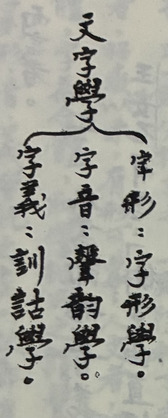 文字學
字形：字形學．
字音：聲韵學。
字義：訓詁學．